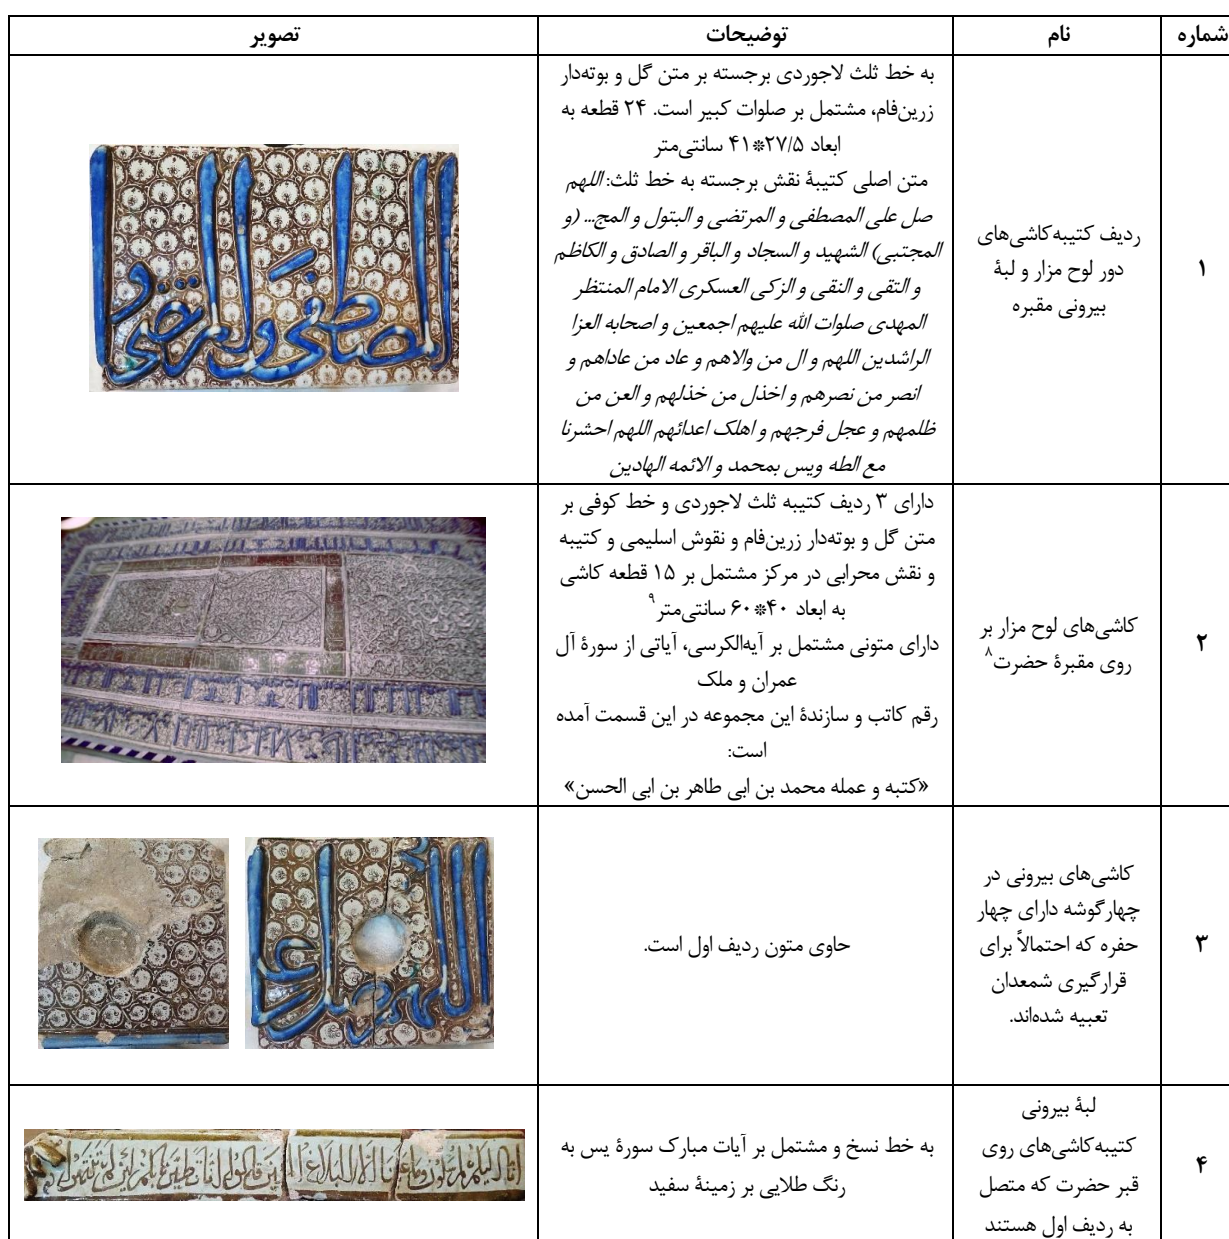 شماره	نام	توضیحات	تصویر
۱
ردیف کتیبه‌کاشی‌های
دور لوح مزار و لبهٔ
بیرونی مقبره
به خط ثلث لاجوردی برجسته بر متن گل و بوته‌دار
زرین‌فام، مشتمل بر صلوات کبیر است. ۲۴ قطعه به
ابعاد ۲۷/۵*۴۱ سانتی‌متر
متن اصلی کتیبهٔ نقش برجسته به خط ثلث: اللهم
صل علی المصطفی و المرتضی و البتول و المج... (و
المجتبی) الشهید و السجاد و الباقر و الصادق و الکاظم
و التقی و النقی و الزکی العسکری الامام المنتظر
المهدی صلوات الله علیهم اجمعین و اصحابه العزا
الراشدین اللهم و ال من والاهم و عاد من عاداهم و
انصر من نصرهم و اخذل من خذلهم و العن من
ظلمهم و عجل فرجهم و اهلک اعدائهم اللهم احشرنا
مع الطه ویس بمحمد و الائمه الهادین
المصطفی و المرتضی و
۲
کاشی‌های لوح مزار بر
روی مقبرهٔ حضرت۸
دارای ۳ ردیف کتیبه ثلث لاجوردی و خط کوفی بر
متن گل و بوته‌دار زرین‌فام و نقوش اسلیمی و کتیبه
و نقش محرابی در مرکز مشتمل بر ۱۵ قطعه کاشی
به ابعاد ۴۰*۶۰ سانتی‌متر۹
دارای متونی مشتمل بر آیه‌الکرسی، آیاتی از سورهٔ آل
عمران و ملک
رقم کاتب و سازندهٔ این مجموعه در این قسمت آمده
است:
«کتبه و عمله محمد بن ابی طاهر بن ابی الحسن»
۳
کاشی‌های بیرونی در
چهارگوشه دارای چهار
حفره که احتمالاً برای
قرارگیری شمعدان
تعبیه شده‌اند.
حاوی متون ردیف اول است.
اللهم صل علی
۴
لبهٔ بیرونی
کتیبه‌کاشی‌های روی
قبر حضرت که متصل
به ردیف اول هستند
به خط نسخ و مشتمل بر آیات مبارک سورهٔ یس به
رنگ طلایی بر زمینهٔ سفید